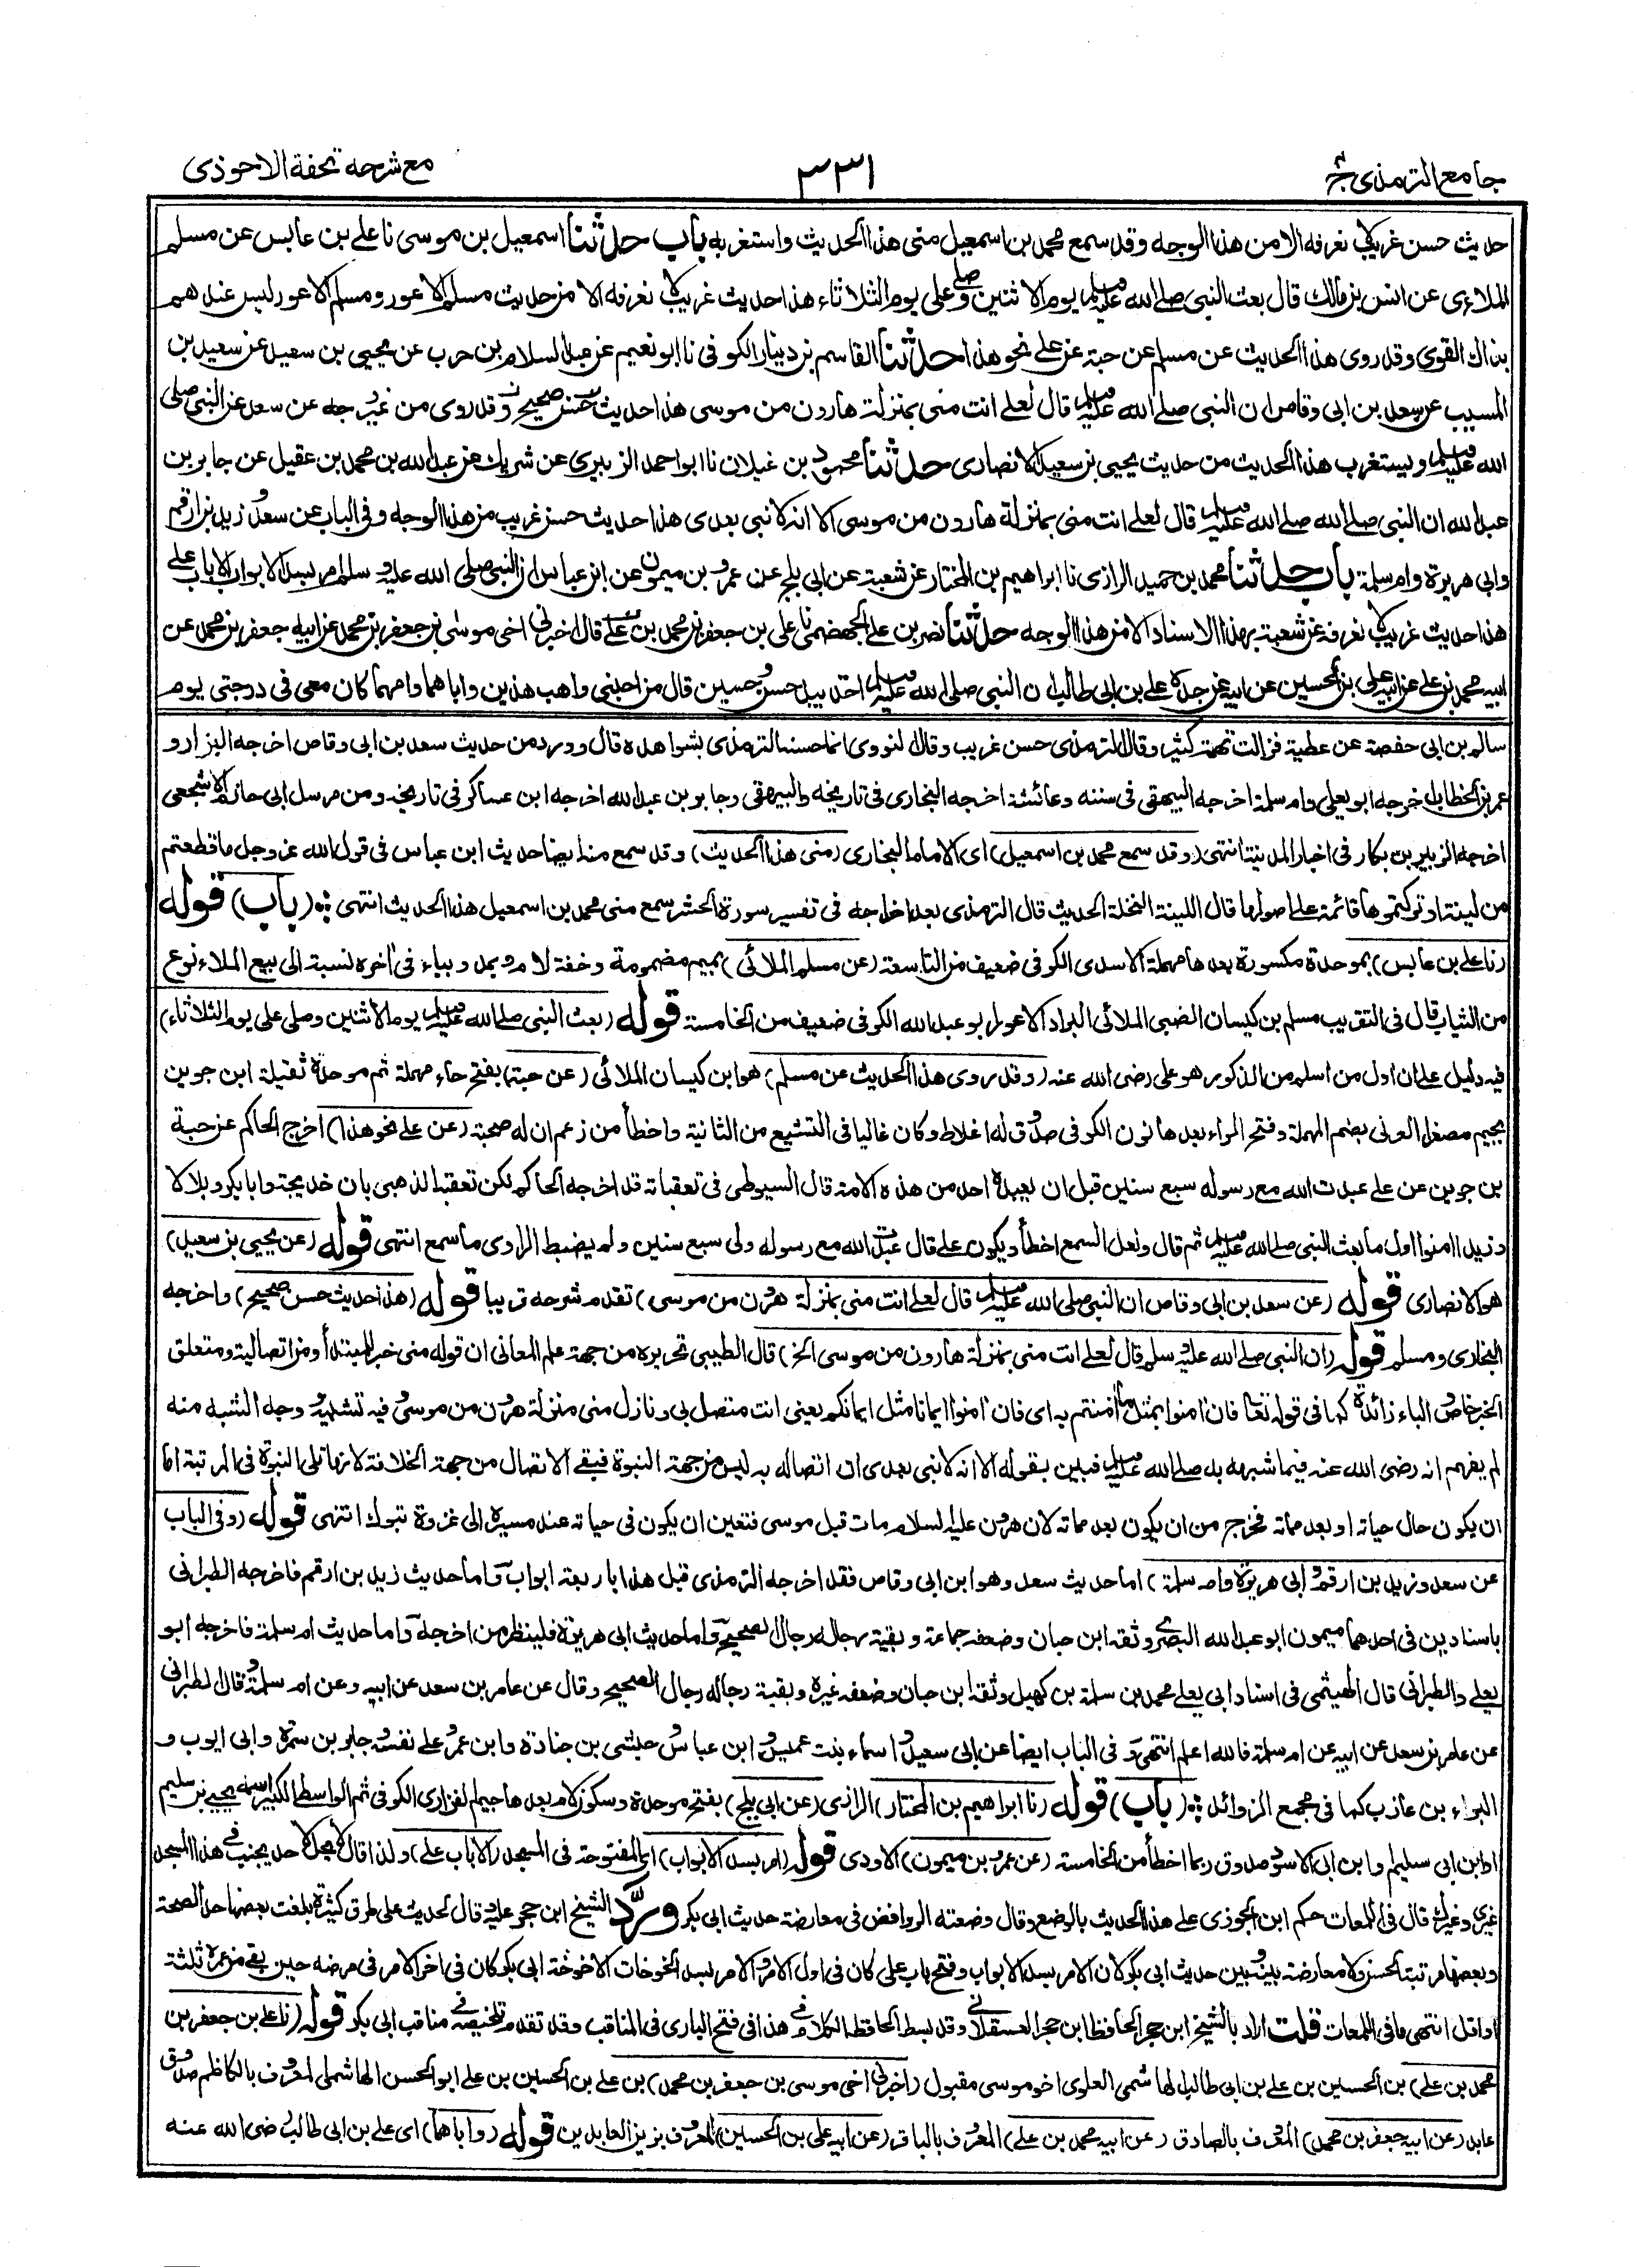 جامع الترمذی ج۴
۳۳۱
مع شرحه تحفة الاحوذی
حدیث حسن غریب لا نعرفه الا من هذا الوجه وقد سمع محمد بن اسمعیل منی هذا الحدیث واستغربه باب حدثنا اسمعیل بن موسی نا علی بن عابس عن مسلم
الملاءی عن انس بن مالك قال بعث النبی صلی الله علیه وسلم یوم الاثنین وصلی علی یوم الثلاثاء هذا حدیث غریب لا نعرفه الا من حدیث مسلم الاعور ومسلم الاعور لیس عندهم
بذاك القوی وقد روی هذا الحدیث عن مسلم عن حبة عن علی نحو هذا حدثنا القاسم بن دینار الکوفی نا ابو نعیم عن عبد السلام بن حرب عن یحیی بن سعید عن سعید بن
المسیب عن سعد بن ابی وقاص ان النبی صلی الله علیه وسلم قال لعلی انت منی بمنزلة هارون من موسی هذا حدیث حسن صحیح وقد روی من غیر وجه عن سعد عن النبی صلی
الله علیه وسلم ویستغرب هذا الحدیث من حدیث یحیی بن سعید الانصاری حدثنا محمود بن غیلان نا ابو احمد الزبیری عن شریك عن عبد الله بن محمد بن عقیل عن جابر بن
عبد الله ان النبی صلی الله صلی الله علیه وسلم قال لعلی انت منی بمنزلة هارون من موسی الا انه لا نبی بعدی هذا حدیث حسن غریب من هذا الوجه وفی الباب عن سعد وزید بن ارقم
وابی هریرة وام سلمة باب حدثنا محمد بن حمید الرازی نا ابراهیم بن المختار عن شعبة عن ابی بلج عن عمرو بن میمون عن ابن عباس ان النبی صلی الله علیه وسلم امر بسد الابواب الا باب علی
هذا حدیث غریب لا نعرفه عن شعبة بهذا الاسناد الا من هذا الوجه حدثنا نصر بن علی الجهضمی نا علی بن جعفر بن محمد بن علی قال اخبرنی اخی موسی بن جعفر بن محمد عن ابیه جعفر بن محمد عن
ابیه محمد بن علی عن ابیه علی بن الحسین عن ابیه عن جده علی بن ابی طالب ان النبی صلی الله علیه وسلم اخذ بید حسن وحسین قال من احبنی واحب هذین واباهما وامهما کان معی فی درجتی یوم
سالم بن ابی حفصة عن عطیة فزالت تهمة کثیر وقال الترمذی حسن غریب وقال النووی انما حسنه الترمذی بشواهده قال وورد من حدیث سعد بن ابی وقاص اخرجه البزار و
عمر بن الخطاب اخرجه ابو یعلی وام سلمة اخرجه البیهقی فی سننه وعائشة اخرجه البخاری فی تاریخه والبیهقی وجابر بن عبد الله اخرجه ابن عساکر فی تاریخه ومن مرسل ابی حازم الاشجعی
اخرجه الزبیر بن بکار فی اخبار المدینة انتهی (وقد سمع محمد بن اسمعیل) ای الامام البخاری (منی هذا الحدیث) وقد سمع منه ایضا حدیث ابن عباس فی قول الله عز وجل ما قطعتم
من لینة او ترکتموها قائمة علی اصولها قال اللینة النخلة الحدیث قال الترمذی بعد اخراجه فی تفسیر سورة الحشر سمع منی محمد بن اسمعیل هذا الحدیث انتهی ؞ (باب) قوله
(نا علی بن عابس) بموحدة مکسورة بعدها مهملة الاسدی الکوفی ضعیف من التاسعة (عن مسلم الملائی) بمیم مضمومة وخفة لام وبمد وبیاء فی اخره نسبة الی بیع الملاء نوع
من الثیاب قال فی التقریب مسلم بن کیسان الضبی الملائی البراد الاعور ابو عبد الله الکوفی ضعیف من الخامسة قوله (بعث النبی صلی الله علیه وسلم یوم الاثنین وصلی علی یوم الثلاثاء)
فیه دلیل علی ان اول من اسلم من الذکور هو علی رضی الله عنه (وقد روی هذا الحدیث عن مسلم) هو ابن کیسان الملائی (عن حبة) بفتح حاء مهملة ثم موحدة ثقیلة ابن جوین
بجیم مصغرا العرنی بضم المهملة وفتح الراء بعدها نون الکوفی صدوق له اغلاط وکان غالیا فی التشیع من الثانیة واخطأ من زعم ان له صحبة (عن علی نحو هذا) اخرج الحاکم عن حبة
بن جوین عن علی عبدت الله مع رسوله سبع سنین قبل ان یعبده احد من هذه الامة قال السیوطی فی تعقباته قد اخرجه الحاکم لکن تعقبه الذهبی بان خدیجة وابا بکر وبلالا
وزیدا امنوا اول ما بعث النبی صلی الله علیه وسلم ثم قال ولعل السمع اخطأ ویکون علی قال عبدت الله مع رسوله ولی سبع سنین ولم یضبط الراوی ما سمع انتهی قوله (عن یحیی بن سعید)
هو الانصاری قوله (عن سعد بن ابی وقاص ان النبی صلی الله علیه وسلم قال لعلی انت منی بمنزلة هرون من موسی) تقدم شرحه قریبا قوله (هذا حدیث حسن صحیح) واخرجه
البخاری ومسلم قوله (ان النبی صلی الله علیه وسلم قال لعلی انت منی بمنزلة هارون من موسی الخ) قال الطیبی تحریره من جهة علم المعانی ان قوله منی خبر للمبتدأ ومن اتصالیة ومتعلق
الخبر خاص والباء زائدة کما فی قوله تعالی فان امنوا بمثل ما امنتم به ای فان امنوا ایمانا مثل ایمانکم یعنی انت متصل بی ونازل منی منزلة هرون من موسی وفیه تشبیه ووجه الشبه منه
لم یفهم انه رضی الله عنه فیما شبهه به صلی الله علیه وسلم فبین بقوله الا انه لا نبی بعدی ان اتصاله به لیس من جهة النبوة فبقی الاتصال من جهة الخلافة لانها تلی النبوة فی المرتبة اما
ان یکون حال حیاته او بعد مماته فخرج من ان یکون بعد مماته لان هرون علیه السلام مات قبل موسی فتعین ان یکون فی حیاته عند مسیره الی غزوة تبوك انتهی قوله (وفی الباب
عن سعد وزید بن ارقم وابی هریرة وام سلمة) اما حدیث سعد وهو ابن ابی وقاص فقد اخرجه الترمذی قبل هذا باربعة ابواب واما حدیث زید بن ارقم فاخرجه الطبرانی
باسنادین فی احدهما میمون ابو عبد الله البصری وثقه ابن حبان وضعفه جماعة وبقیة رجاله رجال الصحیح واما حدیث ابی هریرة فلینظر من اخرجه واما حدیث ام سلمة فاخرجه ابو
یعلی والطبرانی قال الهیثمی فی اسناد ابی یعلی محمد بن سلمة بن کهیل وثقه ابن حبان وضعفه غیره وبقیة رجاله رجال الصحیح وقال عن عامر بن سعد عن ابیه وعن ام سلمة وقال الطبرانی
عن عامر بن سعد عن ابیه عن ام سلمة فالله اعلم انتهی وفی الباب ایضا عن ابی سعید واسماء بنت عمیس وابن عباس وحبشی بن جنادة وابن عمر وعلی نفسه وجابر بن سمرة وابی ایوب و
البراء بن عازب کما فی مجمع الزوائد ؞ (باب) قوله (نا ابراهیم بن المختار) الرازی (عن ابی بلج) بفتح موحدة وسکون لام بعدها جیم الفزاری الکوفی ثم الواسطی الکبیر اسمه یحیی بن سلیم
او ابن ابی سلیم وابن ابی الاسود صدوق ربما اخطأ من الخامسة (عن عمرو بن میمون) الاودی قوله (امر بسد الابواب) ای المفتوحة فی المسجد (الا باب علی) ولذا قال لا یحل لاحد یجنب فی هذا المسجد
غیری وغیرك قال فی اللمعات حکم ابن الجوزی علی هذا الحدیث بالوضع وقال وضعته الروافض فی معارضة حدیث ابی بکر ورد الشیخ ابن حجر علیه وقال لحدیث علی طرق کثیرة بلغت بعضها حد الصحة
وبعضها مرتبة الحسن ولا معارضة بینه وبین حدیث ابی بکر لان الامر بسد الابواب وفتح باب علی کان فی اول الامر والامر بسد الخوخات الا خوخة ابی بکر کان فی اخر الامر فی مرضه حین بقی من عمره ثلثة
او اقل انتهی ما فی اللمعات قلت اراد بالشیخ ابن حجر الحافظ ابن حجر العسقلانی وقد بسط الحافظ الکلام فی هذا فی فتح الباری فی المناقب وقد تقدم تلخیصه فی مناقب ابی بکر قوله (نا علی بن جعفر بن
محمد بن علی) بن الحسین بن علی بن ابی طالب الهاشمی العلوی اخو موسی مقبول (اخبرنی اخی موسی بن جعفر بن محمد) بن علی بن الحسین بن علی ابو الحسن الهاشمی المعروف بالکاظم صدوق
عابد (عن ابیه جعفر بن محمد) المعروف بالصادق (عن ابیه محمد بن علی) المعروف بالباقر (عن ابیه علی بن الحسین) المعروف بزین العابدین قوله (واباهما) ای علی بن ابی طالب رضی الله عنه